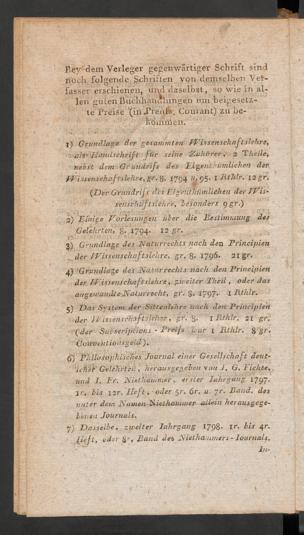 Bey dem Verleger gegenwärtiger Schrift sind
noch folgende Schriften von demselben Ver-
fasser erschienen, und daselbst, so wie in al-
len guten Buchhandlungen um beigesetz-
te Preise (in Preuß. Courant) zu be-
kommen.
1) Grundlage der gesammten Wissenschaftslehre,
als Handschrift für seine Zuhörer, 2 Theile,
nebst dem Grundriss des Eigenthümlichen der
Wissenschaftslehre, gr. 8. 1794 u. 95. 1 Rthlr. 12 gr.
(Der Grundriss des Eigenthümlichen der Wis-
senschaftslehre, besonders 9 gr.)
2) Einige Vorlesungen über die Bestimmung des
Gelehrten, 8. 1794. 12 gr.
3) Grundlage des Naturrechts nach den Principien
der Wissenschaftslehre, gr. 8. 1796. 21 gr.
4) Grundlage des Naturrechts nach den Principien
der Wissenschaftslehre, zweiter Theil, oder das
angewandte Naturrecht, gr. 8. 1797. 1 Rthlr.
5) Das System der Sittenlehre nach den Principien
der Wissenschaftslehre, gr. 8. 1 Rthlr. 21 gr.
(der Subscriptions-Preiss war 1 Rthlr. 8 gr.
Conventionsgeld).
6) Philosophisches Journal einer Gesellschaft deut-
scher Gelehrten, herausgegeben von J. G. Fichte,
und I. Fr. Niethammer, erster Jahrgang 1797.
1r. bis 12r. Heft, oder 5r. 6r. u. 7r. Band. des
unter dem Namen Niethammer allein herausgege-
benen Journals.
7) Dasselbe, zweiter Jahrgang 1798. 1r. bis 4r.
Heft, oder 8r. Band des Niethammers-Journals.
In-